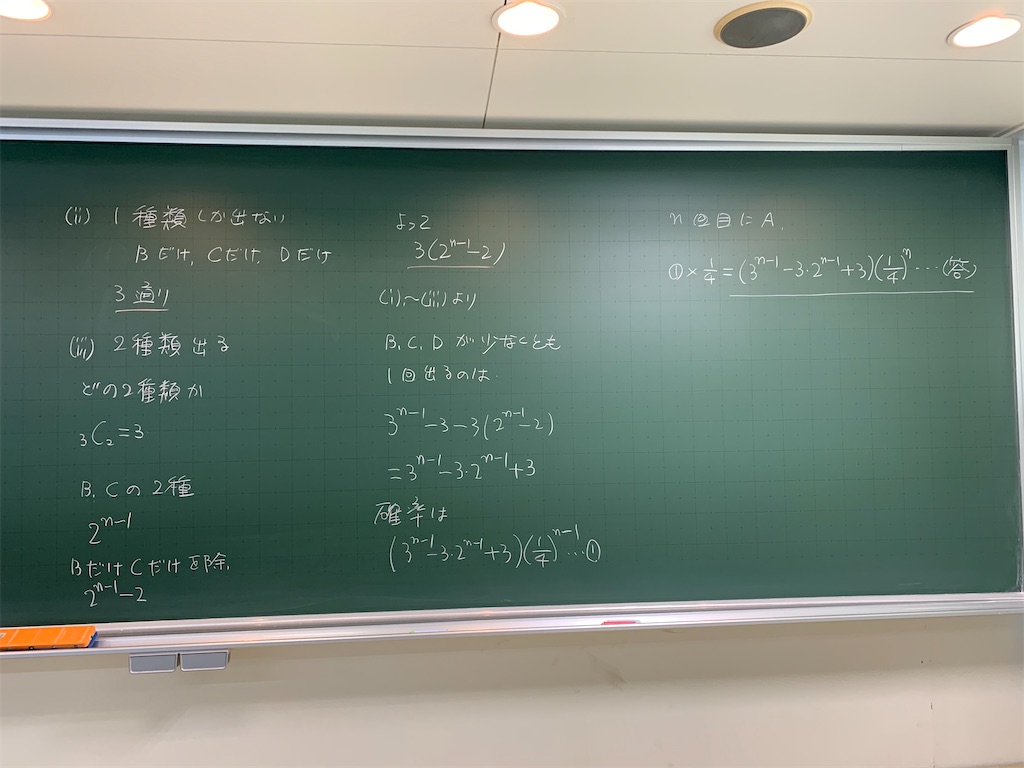 (ii) 1種類しか出ない
Bだけ, Cだけ, Dだけ
3通り
(iii) 2種類出る
どの2種類か
₃C₂=3
B, Cの2種
2^{n-1}
BだけCだけを除,
2^{n-1}-2
よって
3(2^{n-1}-2)
(i)~(iii)より
B, C, Dが少なくとも
1回出るのは
3^{n-1}-3-3(2^{n-1}-2)
=3^{n-1}-3·2^{n-1}+3
確率は
(3^{n-1}-3·2^{n-1}+3)(1/4)^{n-1}…①
n回目にA,
①×1/4=(3^{n-1}-3·2^{n-1}+3)(1/4)^n…(答)